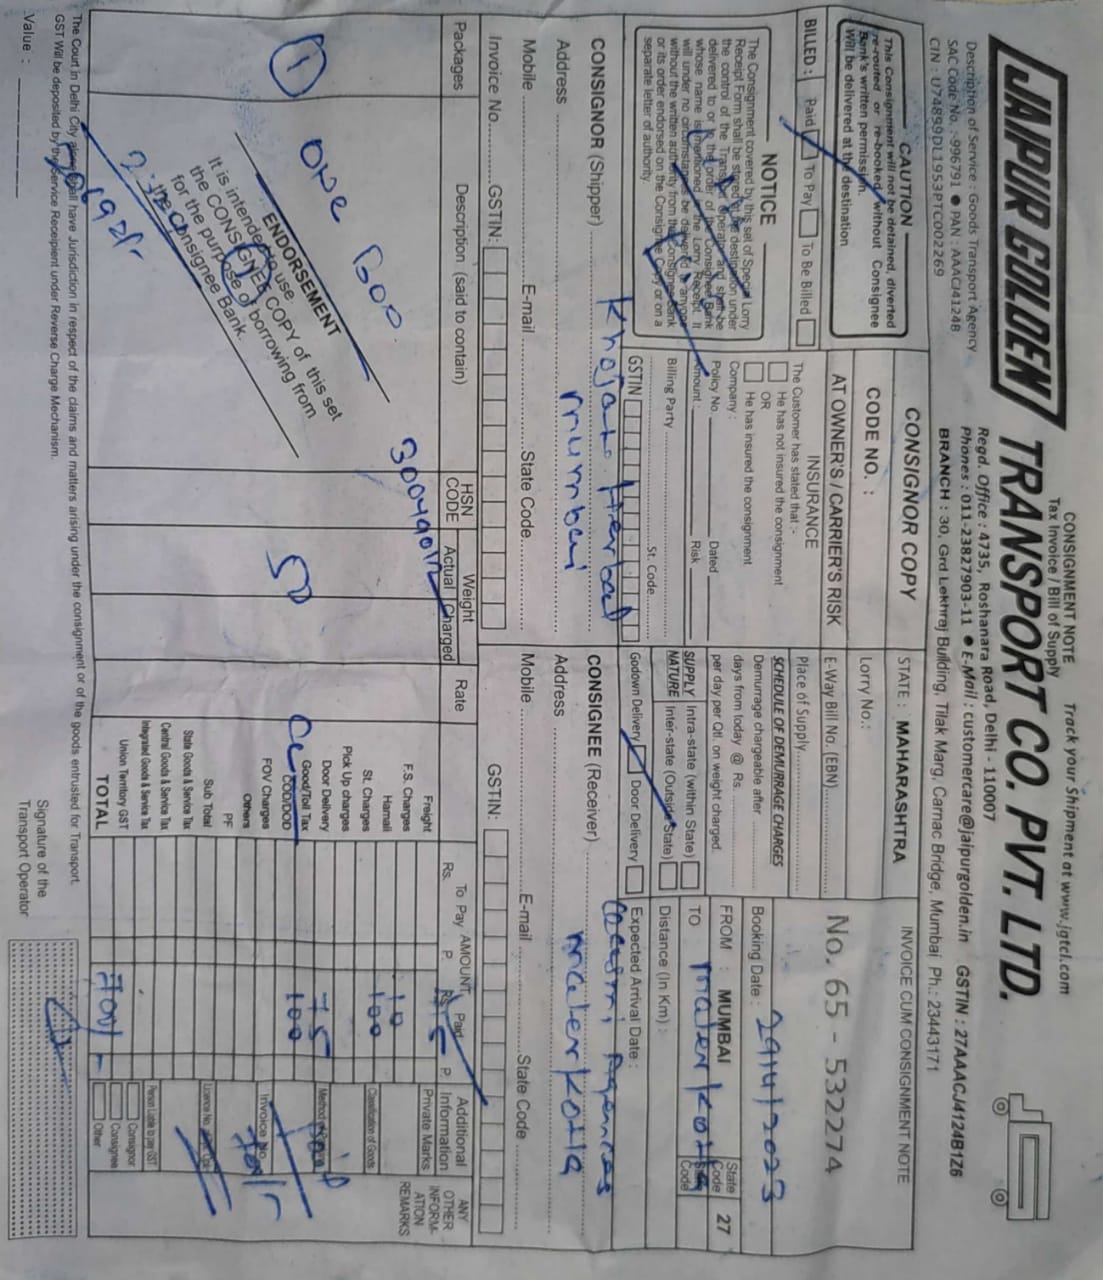 CONSIGNMENT NOTE
Tax Invoice / Bill of Supply
Track your Shipment at www.jgtcl.com
JAIPUR GOLDEN TRANSPORT CO. PVT. LTD.
Regd. Office : 4735, Roshanara Road, Delhi - 110007
Phones : 011-23827903-11 ● E-Mail : customercare@jaipurgolden.in GSTIN : 27AAACJ4124B1Z6
Description of Service : Goods Transport Agency
SAC Code No. :-996791 ● PAN : AAACJ4124B
CIN : U74899DL1953PTC002269
BRANCH : 30, Grd Lekhraj Building, Tilak Marg, Carnac Bridge, Mumbai Ph.: 23443171
CAUTION
This Consignment will not be detained, diverted
re-routed or re-booked without Consignee
Bank's written permission.
Will be delivered at the destination
BILLED : Paid To Pay To Be Billed
NOTICE
The Consignment covered by this set of Special Lorry
Receipt Form shall be stored at the destination under
the control of the Transport Operator and shall be
delivered to or to the order of the Consignee Bank
whose name is mentioned in the Lorry Receipt. It
will under no circumstances be delivered to anyone
without the written authority from the Consignee Bank
or its order endorsed on the Consignee Copy or on a
separate letter of authority.
CONSIGNOR COPY
CODE NO. :
AT OWNER'S / CARRIER'S RISK
INSURANCE
The Customer has stated that :-
He has not insured the consignment
OR
He has insured the consignment
Company :
Policy No. Dated
Amount : Risk
Billing Party
St. Code
GSTIN
STATE : MAHARASHTRA
Lorry No.:
E-Way Bill No. (EBN)
Place of Supply
SCHEDULE OF DEMURRAGE CHARGES
Demurrage chargeable after
days from today @ Rs.
per day per Qtl. on weight charged.
SUPPLY NATURE
Intra-state (within State)
Inter-state (Outside State)
Godown Delivery Door Delivery
INVOICE CUM CONSIGNMENT NOTE
No. 65 - 532274
Booking Date : 29/4/2023
FROM : MUMBAI State Code 27
TO malerkotla State Code
Distance (In Km) :
Expected Arrival Date :
CONSIGNOR (Shipper) Khojati Herbal
Address mumbai
Mobile E-mail State Code
Invoice No. GSTIN:
CONSIGNEE (Receiver) Agencies
Address malerkotla
Mobile E-mail State Code
GSTIN:
Packages
Description (said to contain)
HSN CODE
Weight
Actual Charged
Rate
AMOUNT
To Pay Paid
Rs. P. Rs. P.
Additional Information
Private Marks
ANY OTHER INFORMATION REMARKS
1
one Boo
50
Freight
F.S. Charges
Hamali 10
St. Charges 100
Pick Up charges
Door Delivery 75
Good/Toll Tax
COD/DOD 100
FOV Charges
Others
PF
Sub Total
State Goods & Service Tax
Central Goods & Service Tax
Integrated Goods & Service Tax
Union Territory GST
TOTAL 700/-
Classification of Goods
Invoice No.
Person Liable to pay GST
Consignor
Consignee
Other
ENDORSEMENT
It is intended to use
the CONSIGNEE COPY of this set
for the purpose of borrowing from
the Consignee Bank.
The Court in Delhi City alone shall have Jurisdiction in respect of the claims and matters arising under the consignment or of the goods entrusted for Transport.
GST Will be deposited by the Service Receipient under Reverse Charge Mechanism.
Value :
Signature of the
Transport Operator